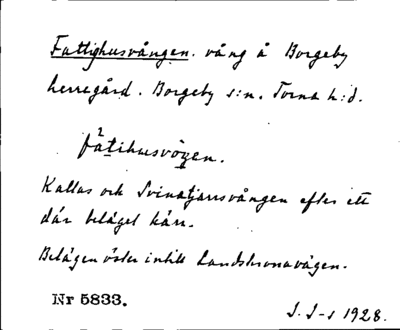 Fattighusvången. vång å Borgeby
herregård. Borgeby s:n. Torna h:d.
fàtihusvöŋen.
Kallas och Svinatjarrsvången efter ett
där beläget kärr.
Belägen öster intill Landskronavägen.
Nr 5833.
J. J-s 1928.